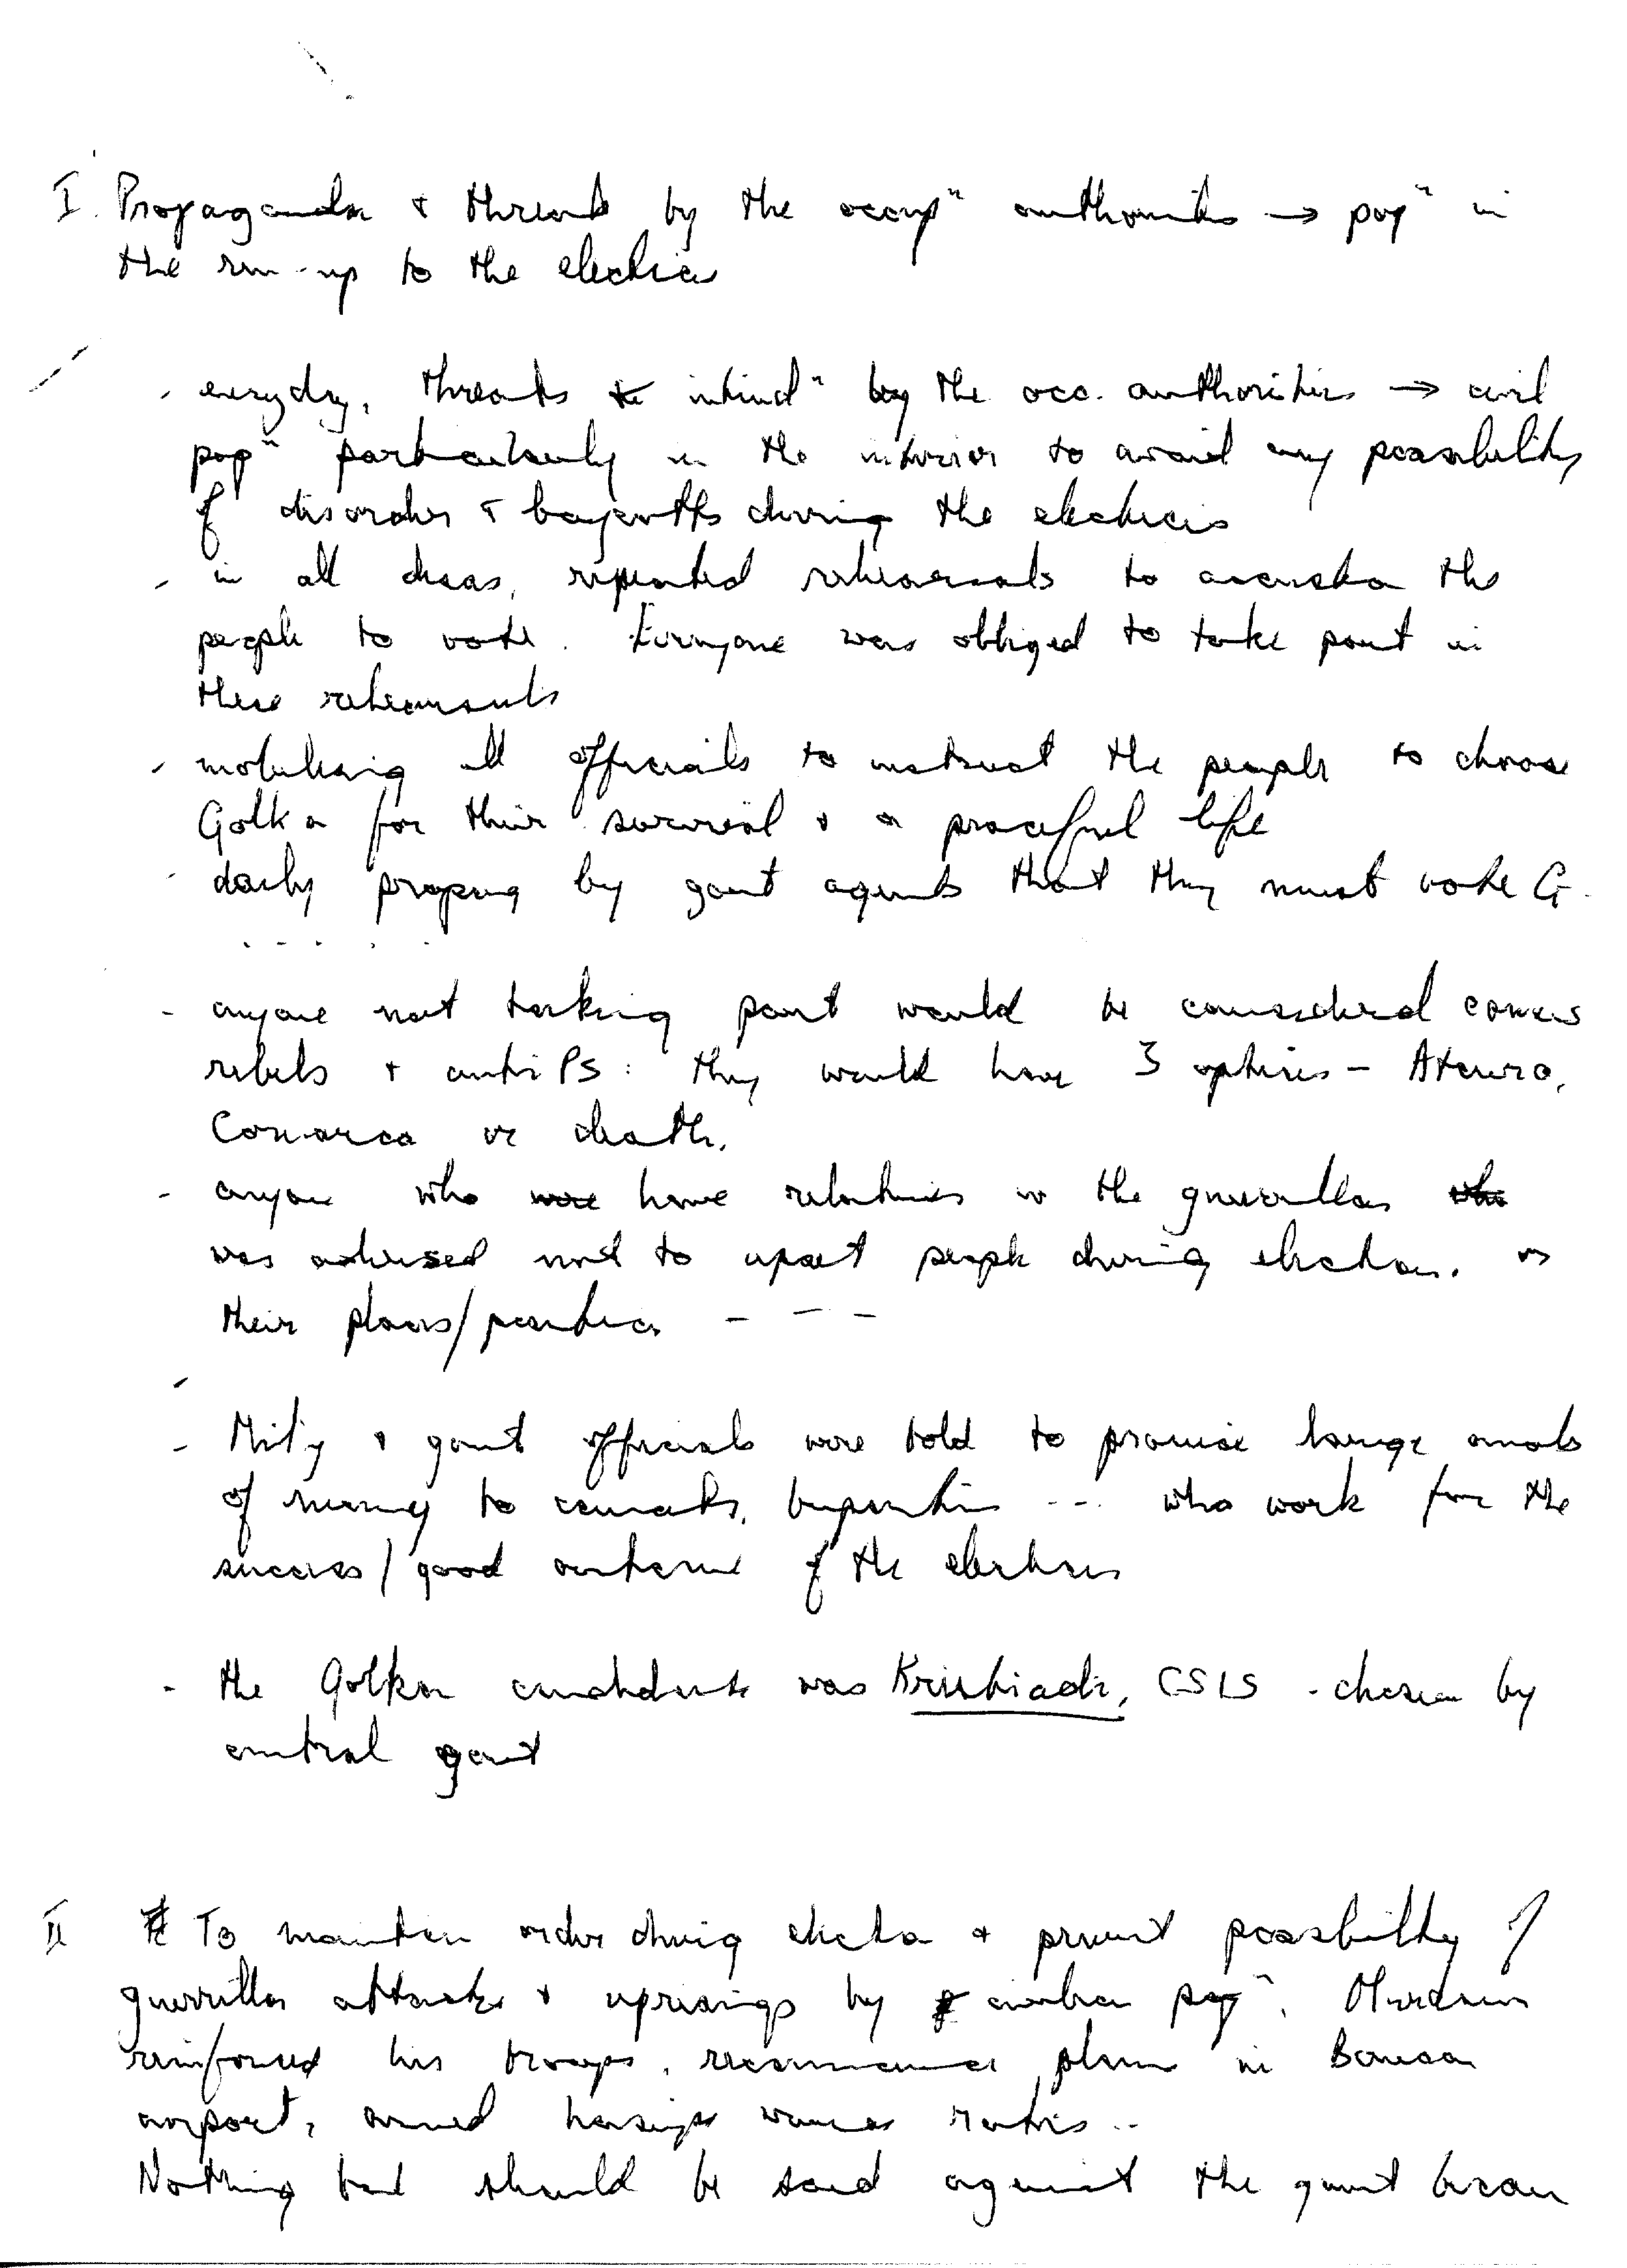 I. Propaganda & threats by the occupⁿ authorities → popⁿ in
the run-up to the elections
- everyday, threats & intimidⁿ by the occ. authorities → civil
popⁿ particularly in the interior to avoid any possibility
of disorder & boycotts during the elections
- in all areas, repeated rehearsals to accustom the
people to vote. Everyone was obliged to take part in
these rehearsals
- mobilising all officials to instruct the people to choose
Golkar for their survival & a peaceful life
- daily propag by govt agents that they must vote G.
- . - . .
- anyone not taking part would be considered
rebels & anti PS: they would have 3 options - Atauro,
Comarca or death.
- anyone who were have relatives w the guerrillas who
was advised not to upset people during election. or
their plans/ - - -
- Mil'y & govt officials were told to promise large amts
of money to camats, bupatis --- who work for the
success/good outcome of the elections
- the Golkar candidate was Kristiadi, CSIS - chosen by
central govt
II To maintain order during election & prevent possibility of
guerrilla attacks & uprisings by civilian popⁿ. Murdani
reinforced his troops, reconnaissance planes in Baucau
airport, armed hansips various routes..
Nothing bad should be said against the govt because